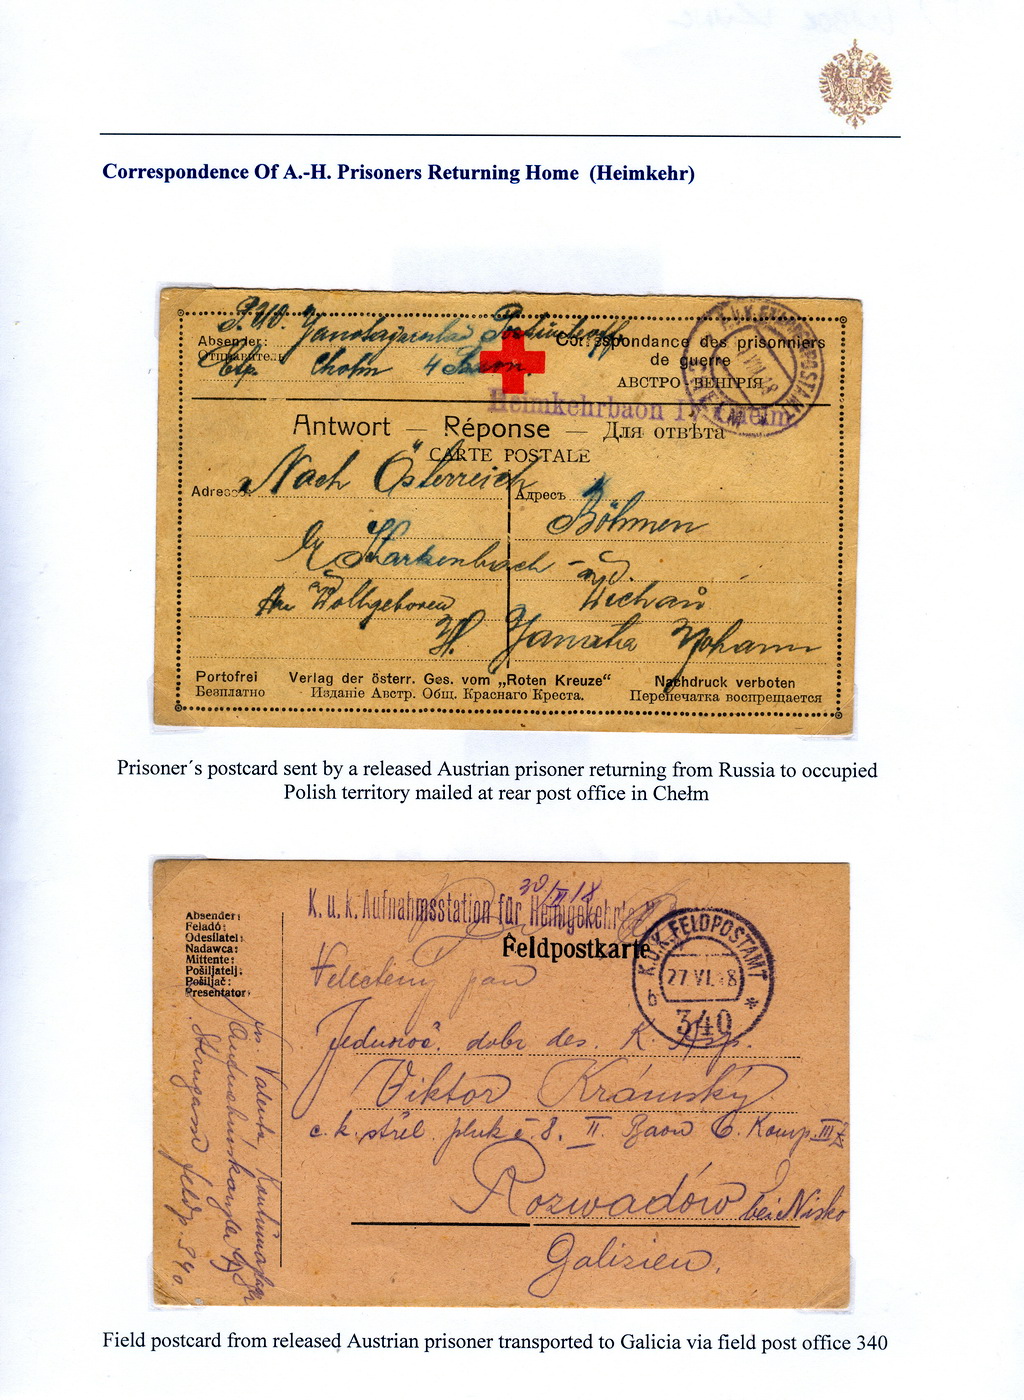 Correspondence Of A.-H. Prisoners Returning Home (Heimkehr)
Absender:
Отправитель
Cholm 4
Correspondance des prisonniers
de guerre
АВСТРО-ВЕНГРІЯ
K.U.K. ETAPPENPOSTAMT
CHELM
Heimkehrbaon Cholm
Antwort — Réponse — Для отвѣта
CARTE POSTALE
Adresse:
Адресъ
Nach Österreich
Böhmen
Starkenbach
Wichau
Wohlgeboren
H. Johann
Portofrei
Безплатно
Verlag der österr. Ges. vom „Roten Kreuze“
Изданіе Австр. Общ. Краснаго Креста.
Nachdruck verboten
Перепечатка воспрещается
Prisoner´s postcard sent by a released Austrian prisoner returning from Russia to occupied
Polish territory mailed at rear post office in Chełm
30/VI 18
K. u. k. Aufnahmsstation für Heimgekehrte
Feldpostkarte
K.U.K. FELDPOSTAMT
27 VI 18
b *
340
Absender:
Feladó:
Odesílatel:
Nadawca:
Mittente:
Pošiljatelj:
Pošiljač:
Presentator:
Velectěný pan
dobr. des. K. Asp.
Viktor Krámský
c. k. střel. pluk č. 8. II. Baon 6. Komp. III
Rozwadów bei Nisko
Galizien.
Valenta,
feldp. 340
Field postcard from released Austrian prisoner transported to Galicia via field post office 340